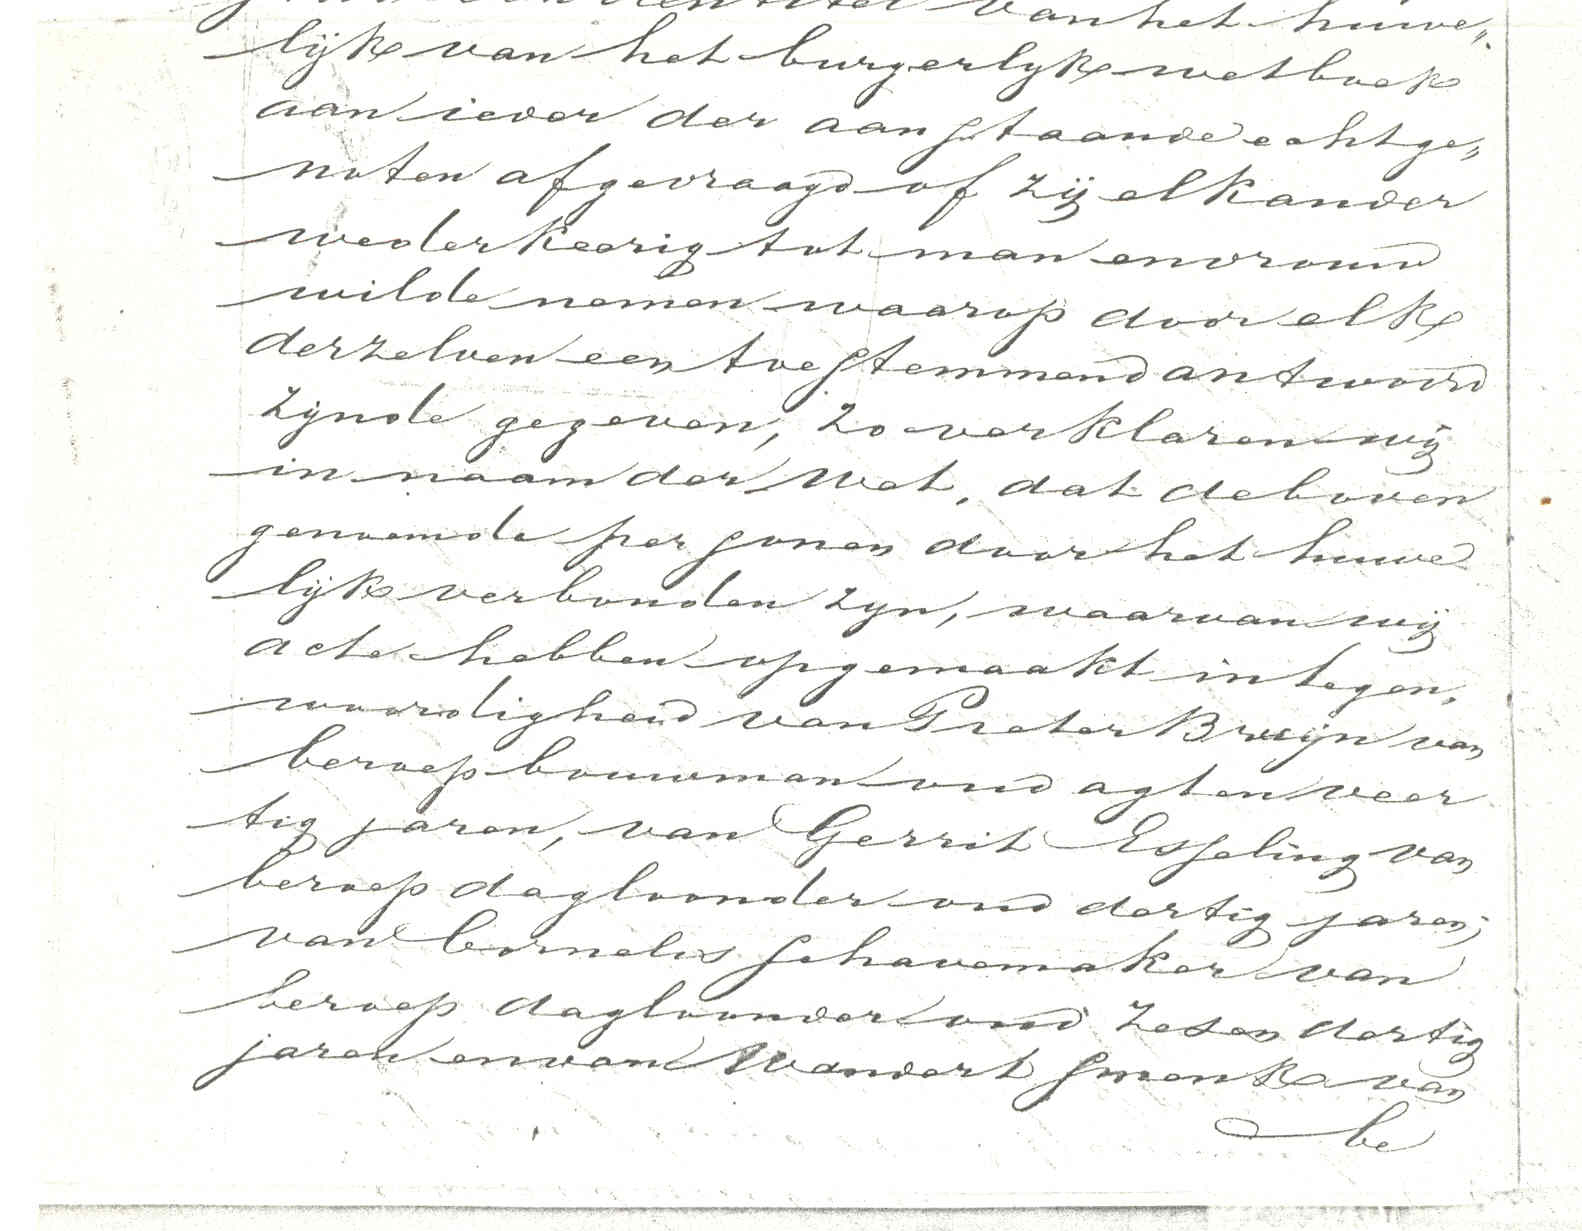 den titel van het huwe„
lijk van het burgerlyk wetboek
aan ieder der aanstaande echtge„
noten afgevraagd of zij elkander
wederkeerig tot man en vrouw
wilde nemen waarop door elk
derzelven een toestemmend antwoord
zijnde gegeven, zo verklaren wij
in naam der Wet, dat de boven
genoemde personen door het huwe
lijk verbonden zyn, waarvan wij
acte hebben opgemaakt in tegen,
woordigheid van Pieter Bruijn van
beroep bouwman oud agt en veer
tig jaren, van Gerrit Esseling van
beroep dagloonder oud dertig jaren;
van Cornelis Schavemaker van
beroep dagloonder oud zes en dertig
jaren en van Wandert Smenk van
be